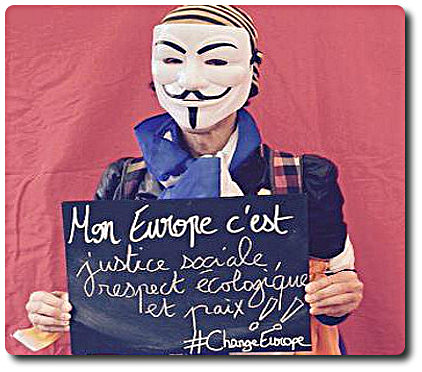 Mon Europe c'est
justice sociale,
respect écologique
et paix
#ChangeEurope